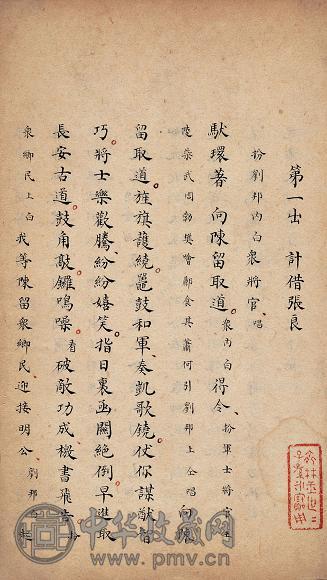 第一出 計借張良
扮劉邦內白衆將官 唱
馱環著 向陳留取道 衆內白 得令 扮軍士將官
陵柴武周勃樊噲酈食其蕭何引劉邦上仝唱 向陳
留取道 旌旗護繞 鼉鼓和軍 奏凱歌鐃 仗你謀猷
巧 將士樂歡騰 紛紛嬉笑 指日裏函關絕倒 早進取
長安古道 鼓角敲 鑼鳴噪 看 破敵功成檄書飛告
衆鄉民上白 我等陳留衆鄉民迎接明公 劉邦白 起
中华收藏网
www.pmv.cn